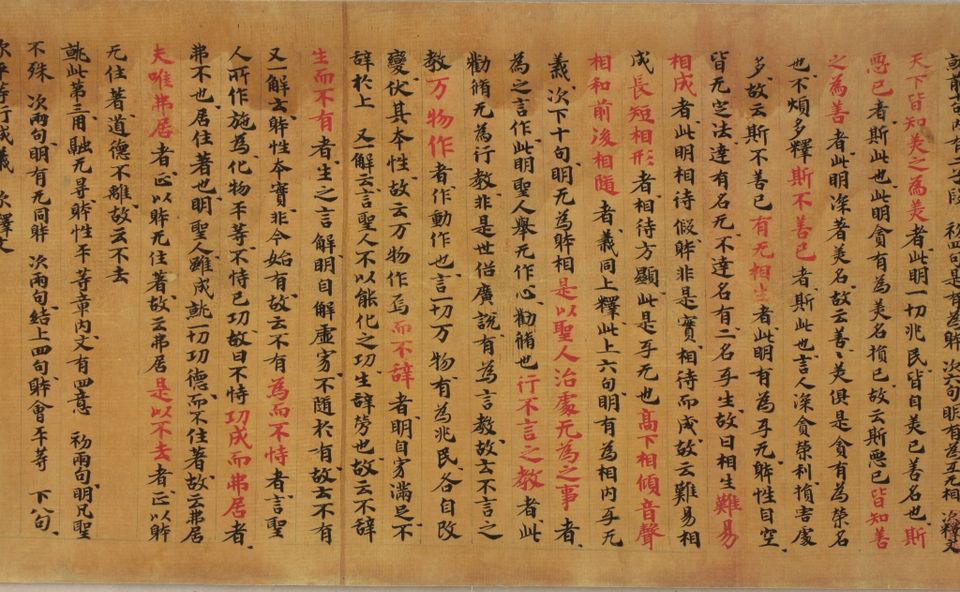 前句內有二子段 初四句是有為躰 次六句明有為互无相 次釋文
天下皆知美之為美者此明一切兆民皆自美已善名也斯
惡已者斯此也此明貪有為美名損已故云斯惡已皆知善
之為善者此明深著美名故云善〻美俱是貪有為榮名
也不煩多釋斯不善已者斯此也言人深貪榮利損害處
多故云斯不善已有无相生者此明有為互无躰性自空
皆无定法達有名无不達名有二名互生故曰相生難易
相成者此明相待假躰非是實相待而成故云難易相
成長短相形者相待方顯此是互无也高下相傾音聲
相和前後相隨者義同上釋此上六句明有為相內互无
義次下十句明无為躰相是以聖人治處无為之事者
為之言作此明聖人舉无作心勸脩也行不言之教者此
勸脩无為行教非是世俗廣說有為言教故云不言之
教万物作者作動作也言一切万物有為兆民各自改
變伏其本性故云万物作焉而不辞者明自家滿足不
辞於上 又一解云言聖人不以能化之功生辞勞也故云不辞
生而不有者生之言解明自解虛寂不隨於有故云不有
又一解云躰性本實非今始有故云不有為而不恃者言聖
人所作施為化物平等不恃己功故曰不恃功成而弗居者
弗不也居住著也明聖人雖成就一切功德而不住著故云弗居
夫唯弗居者正以躰无住著故云弗居是以不去者正以躰
无住著道德不離故云不去
就此第三用融无㝵躰性平等章內文有四意 初兩句明凡聖
不殊 次兩句明有无同躰 次兩句結上四句躰會平等 下八句
次平等行成義 次釋文